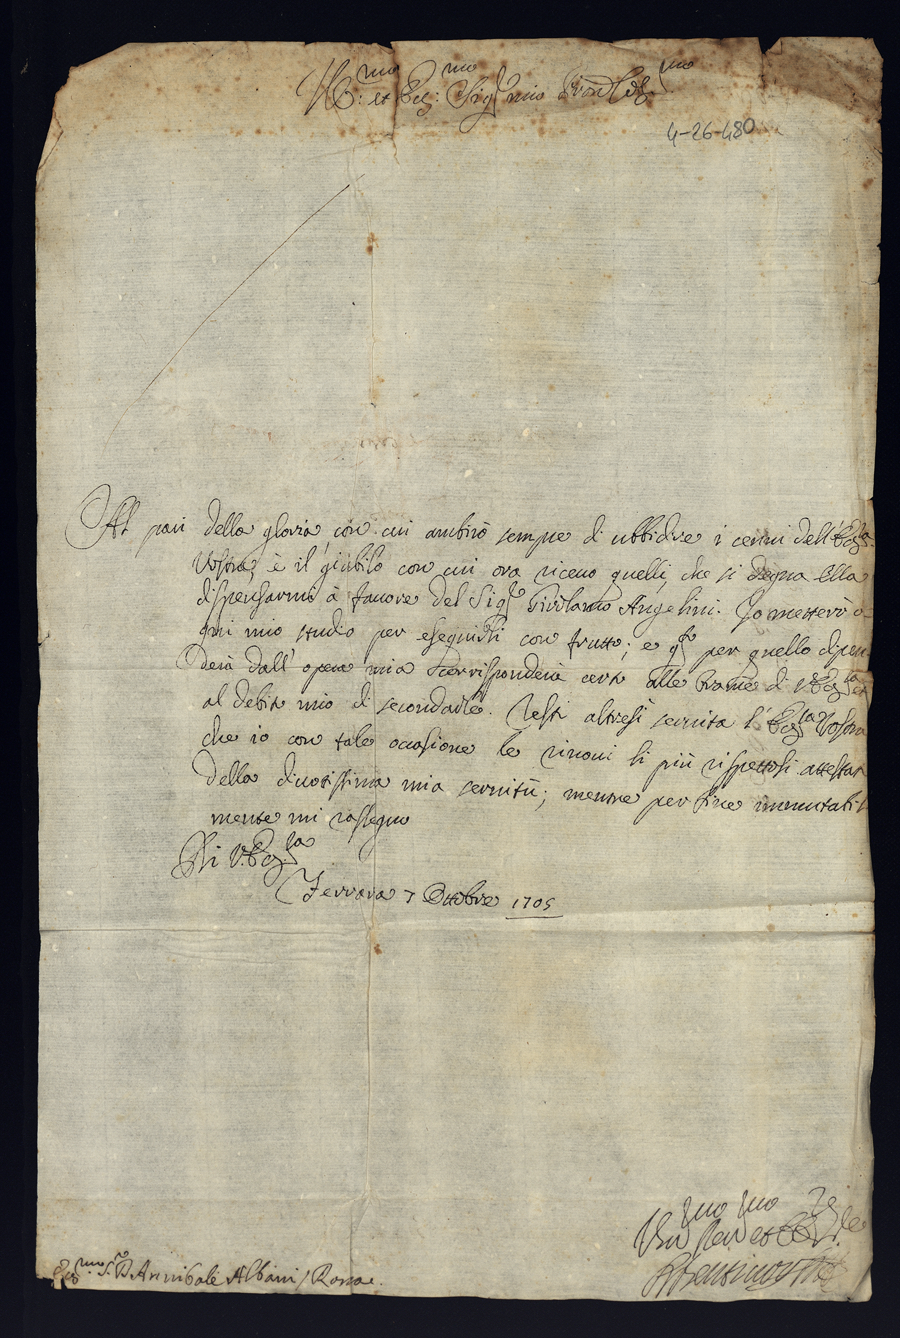 Ill:mo et Ecc:mo Sig.r mio Pron Col.mo
4-26-480
Al pari della gloria, con cui ambirò sempre di ubbidire i cenni dell'Ecc.za
Vostra, è il giubilo con cui ora riceuo quelli, che si degna Ella
dispensarmi à fauore del Sig.r Girolamo Angelini. Io metterò o-
gni mio studio per eseguirli con frutto; e per quello dipen-
derà dall'opera mia corrisponderà certo alle brame di V. Ecc.za et
al debito mio di secondarle. Resti altresì seruita l'Ecc.za Vostra
che io con tale occasione le rinoui li più rispettosi attestati
della diuotissima mia seruitù; mentre per fine immutabil-
mente mi rassegno
Di V. Ecc.za
Ferrara 7 Ottobre 1705
Ecc.mo S.r D. Annibale Albani / Roma.